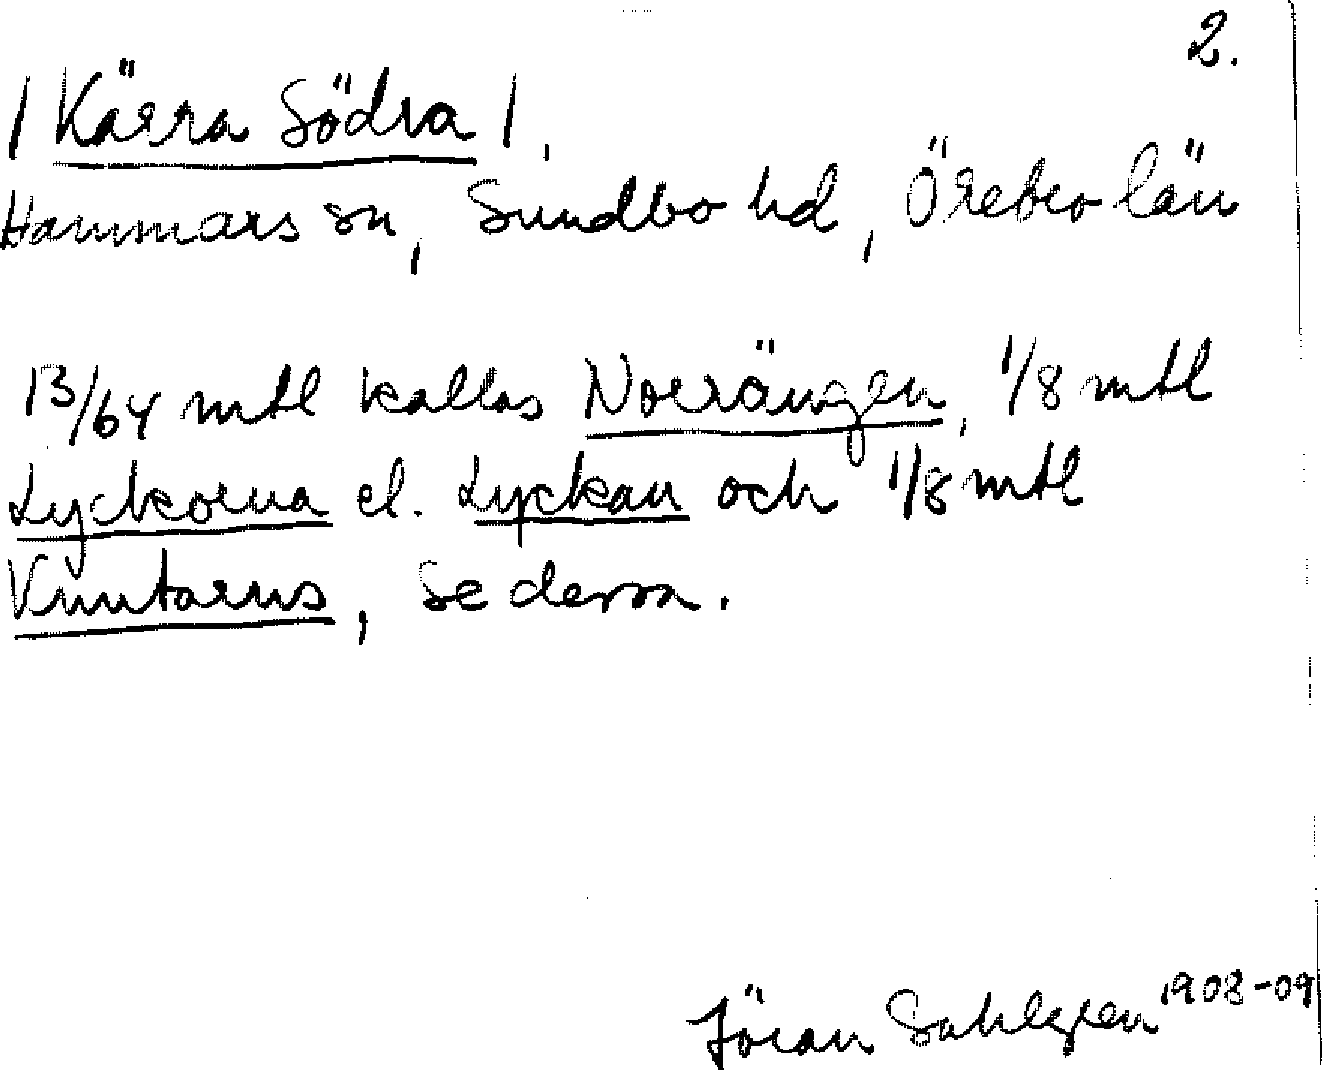 2.
/ Kärra Södra /,
Hammars sn, Sundbo hd, Örebro län
13/64 mtl kallas Norrängen, 1/8 mtl
Lyckorna el. Lyckan och 1/8 mtl
Knutarns, se dessa.
Jöran Sahlgren 1908-09